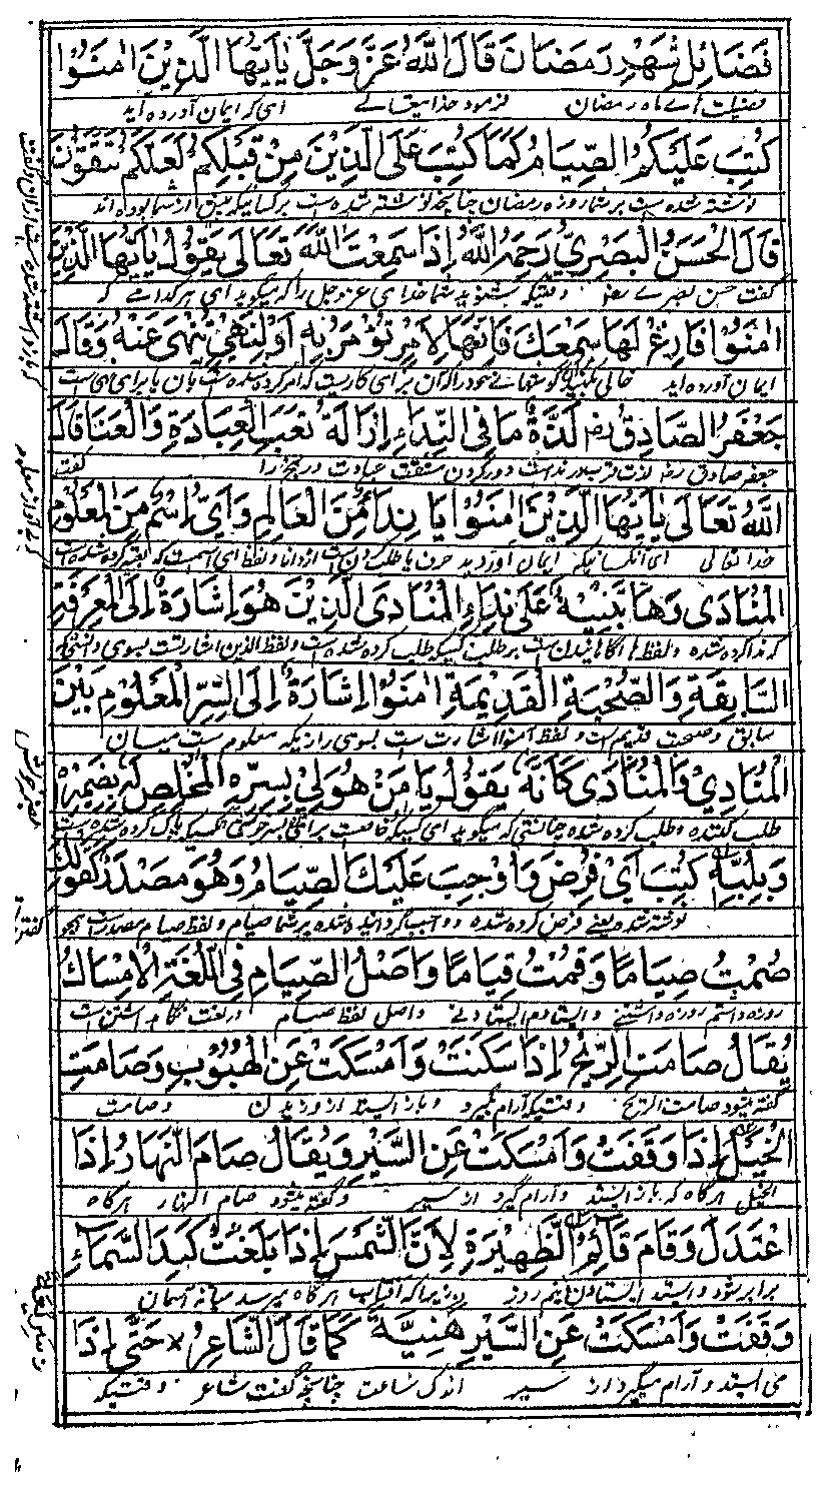 فَضَائِلِ شَهْرِ رَمَضَانَ قَالَ اللّٰهُ عَزَّ وَجَلَّ يٰاَيُّهَا الَّذِيْنَ اٰمَنُوْا
فضیلت ماه رمضان فرمود خدایتعالے ای که ایمان آورده اید
كُتِبَ عَلَيْكُمُ الصِّيَامُ كَمَا كُتِبَ عَلَى الَّذِيْنَ مِنْ قَبْلِكُمْ لَعَلَّكُمْ تَتَّقُوْنَ
نوشته شده است بر شما روزه رمضان چنانچه نوشته شده است بر کسانیکه پیش از شما بوده اند
قَالَ الْحَسَنُ الْبَصَرِيُّ رَحِمَهُ اللّٰهُ اِذَا سَمِعْتَ اللّٰهَ تَعَالٰى يَقُوْلُ يٰاَيُّهَا الَّذِيْنَ
گفت حسن بصرے رضہ وقتیکه بشنوید شما خدای عزوجل را که میگوید ای هر کدامے که
اٰمَنُوْا فَارِغْ لَهَا سَمْعَكَ فَاِنَّهَا لِاَمْرٍ تُؤْمَرُ بِهٖ اَوْ لِنَهْيٍ تُنْهٰى عَنْهُ وَقَالَ
ایمان آورده اید خالی بکنید گوشهائے خود را که آن برای کاریست که امر کرده شده است بآن یا برای نهی است
جَعْفَرُ الصَّادِقُ رضہ لَذَّةُ مَا فِى النِّدَاءِ اِزَالَةُ تَعَبِ الْعِبَادَةِ وَالْعَنَا قَالَ
جعفر صادق رضہ لذت در نداست دور کردن مشقت عبادت و رنج را گفت
اللّٰهُ تَعَالٰى يٰاَيُّهَا الَّذِيْنَ اٰمَنُوْا يَا نِدَاءٌ مِّنَ الْعَالِمِ وَاَيُّ اِسْمٌ مِنَ الْمَعْلُوْمِ
خدا تعالی ای آنکسانیکه ایمان آوردید حرف یا طلب کردن است از دانا و لفظ ای اسمیست که
الْمُنَادٰى وَهَا تَنْبِيْهٌ عَلٰى نِدَاءِ الْمُنَادَى الَّذِيْنَ هُوَ اِشَارَةٌ اِلَى الْمَعْرِفَةِ
که ندا کرده شده و لفظ ها آگاهانیدن است بر طلب کسیکه طلب کرده شده است و لفظ الذین اشارتست بسوی
السَّابِقَةِ وَالصُّحْبَةِ الْقَدِيْمَةِ اٰمَنُوْا اِشَارَةٌ اِلَى السِّرِّ الْمَعْلُوْمِ بَيْنَ
سابق و صحبت قدیم است و لفظ آمنوا اشارت ست بسوی رازیکه معلوم ست میان
الْمُنَادِيْ وَالْمُنَادٰى كَاَنَّهٗ يَقُوْلُ يَا مَنْ هُوَ لِيْ بِسِرِّهٖ الْمُخْلِصُ لَهٗ بِضَمِيْرِهٖ
طلب کننده و طلب کرده شده چنانستی که میگوید ای کسیکه
وَبِلُبِّهٖ كُتِبَ اَيْ فُرِضَ وَاُوْجِبَ عَلَيْكَ الصِّيَامُ وَهُوَ مَصْدَرٌ كَقَوْلِكَ
نوشته شده یعنے فرض کرده شده و واجب گردانیده شده بر شما صیام و لفظ صیام مصدرست
صُمْتُ صِيَامًا وَقُمْتُ قِيَامًا وَاَصْلُ الصِّيَامِ فِى اللُّغَةِ الْاِمْسَاكُ
روزه داشتم روزه داشتنے و ایستادم ایستادنے و اصل لفظ صیام در لغت نگاه داشتن است
يُقَالُ صَامَتِ الرِّيْحُ اِذَا سَكَنَتْ وَاَمْسَكَتْ عَنِ الْهُبُوْبِ وَصَامَتِ
گفته میشود صامت الریح وقتیکه آرام گیرد و باز ایستد از وزیدن و صامت
الْخَيْلُ اِذَا وَقَفَتْ وَاَمْسَكَتْ عَنِ السَّيْرِ وَيُقَالُ صَامَ النَّهَارُ اِذَا
الخیل هرگاه که باز ایستد و آرام گیرد از سیر و گفته میشود صام النهار هرگاه
اعْتَدَلَ وَقَامَ قَائِمُ الظَّهِيْرَةِ لِاَنَّ الشَّمْسَ اِذَا بَلَغَتْ كَبِدَ السَّمَاءِ
برابر شود و ایستد ایستادن نیم روز زیرا که آفتاب هرگاه میرسد میانه آسمان
وَقَفَتْ وَاَمْسَكَتْ عَنِ السَّيْرِ هُنَيَّةً كَمَا قَالَ الشَّاعِرُ حَتّٰى اِذَا
می ایستد و آرام میگیرد از سیر اندک ساعت چنانچه گفت شاعر وقتیکه